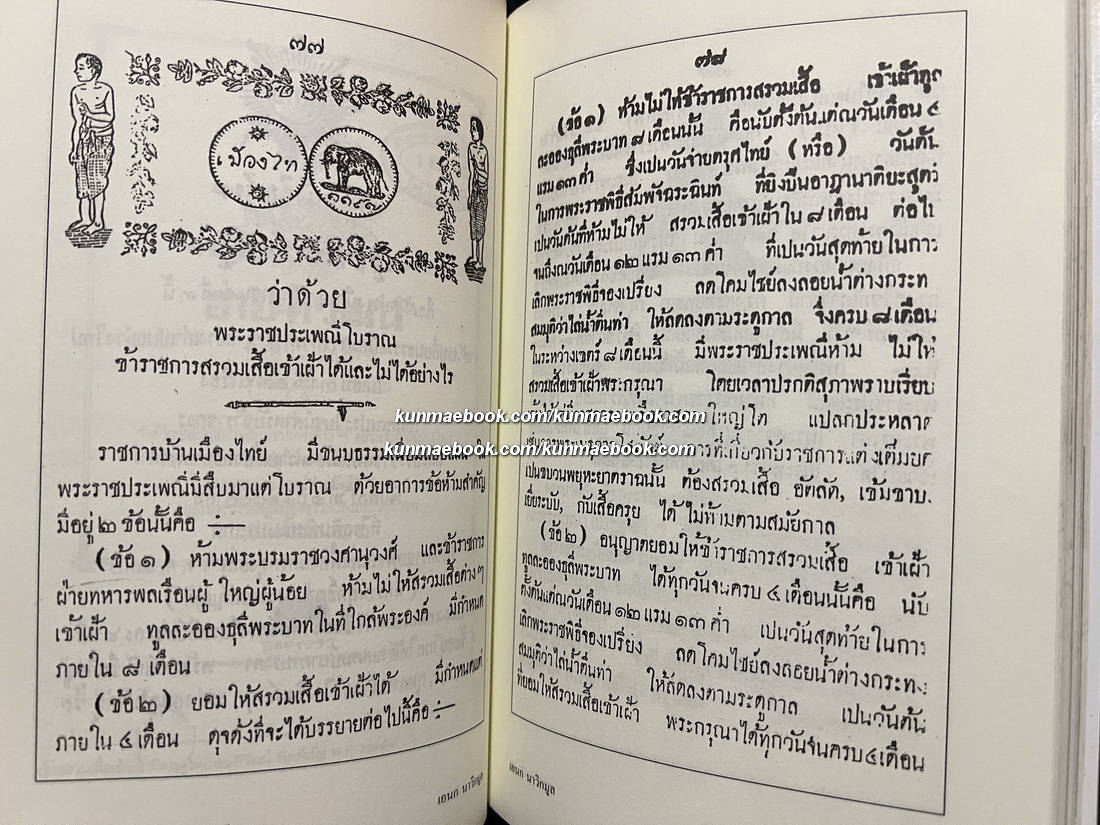 ๗๗
เมืองไท
ว่าด้วย
พระราชประเพณีโบราณ
ข้าราชการสรวมเสื้อเข้าเฝ้าได้และไม่ได้อย่างไร
ราชการบ้านเมืองไทย มีขนบธรรมเนียม
พระราชประเพณีมีสืบมาแต่โบราณ ด้วยอาการข้อห้ามสำคัญ
มีอยู่ ๒ ข้อนั้นคือ
(ข้อ ๑) ห้ามพระบรมราชวงศานุวงศ์ และข้าราชการ
ฝ่ายทหารพลเรือนผู้ใหญ่ผู้น้อย ห้ามไม่ให้สรวมเสื้อต่าง ๆ
เข้าเฝ้า ทูลละอองธุลีพระบาทในที่ใกล้พระองค์ มีกำหนด
ภายใน ๘ เดือน
(ข้อ ๒) ยอมให้สรวมเสื้อเข้าเฝ้าได้ มีกำหนดแต่
ภายใน ๔ เดือน ดุจดังที่จะได้บรรยายต่อไปนี้คือ
เอนก นาวิกมูล
๗๘
(ข้อ ๑) ห้ามไม่ให้ข้าราชการสรวมเสื้อ เข้าเฝ้าทูล
ละอองธุลีพระบาท ๘ เดือนนั้น คือนับตั้งต้นแต่ณวันเดือน ๔
แรม ๑๓ ค่ำ ซึ่งเปนวันจ่ายตรุศไทย์ (หรือ) วันต้น
ในการพระราชพิธีสัมพัจฉระฉินท์ ที่ยิงปืนอาฏานาติยะสูตร์
เปนวันต้นที่ห้ามไม่ให้ สรวมเสื้อเข้าเฝ้าใน ๘ เดือน ต่อไป
จนถึงณวันเดือน ๑๒ แรม ๑๓ ค่ำ ที่เปนวันสุดท้ายในการ
เลิกพระราชพิธีจองเปรียง ลดโคมไชย์ลงลอยน้ำต่างกระทง
สมมุติว่าไล่น้ำตื่นท่า ให้ลดลงตามระดูกาล จึ่งครบ ๘ เดือน
ในระหว่างเขตร์ ๘ เดือนนี้ มีพระราชประเพณีห้าม ไม่ให้
สรวมเสื้อเข้าเฝ้าพระกรุณา โดยเวลาปรกติสุภาพราบเรียบ
ใหญ่โต แปลกประหลาด
การที่เกี่ยวกับราชการแต่งเต็มยศ
เปนขบวนพยุหะยาตราฉนั้น ต้องสรวมเสื้อ อัตลัด, เข้มขาบ,
เยี่ยระบับ, กับเสื้อครุย ได้ ไม่ห้ามตามสมัยกาล
(ข้อ ๒) อนุญาตยอมให้ข้าราชการสรวมเสื้อ เข้าเฝ้า
ทูลละอองธุลีพระบาท ได้ทุกวันจนครบ ๔ เดือนนั้นคือ นับ
ตั้งต้นแต่ณวันเดือน ๑๒ แรม ๑๓ ค่ำ เปนวันสุดท้ายในการ
เลิกพระราชพิธีจองเปรียง ลดโคมไชย์ลงลอยน้ำต่างกระทง
สมมุติว่าไล่น้ำตื่นท่า ให้ลดลงตามระดูกาล เปนวันต้น
ที่ยอมให้สรวมเสื้อเข้าเฝ้า พระกรุณาได้ทุกวันจนครบ ๔ เดือน
เอนก นาวิกมูล
kunmaebook.com/kunmaebook.com
kunmaebook.com/kunmaebook.com